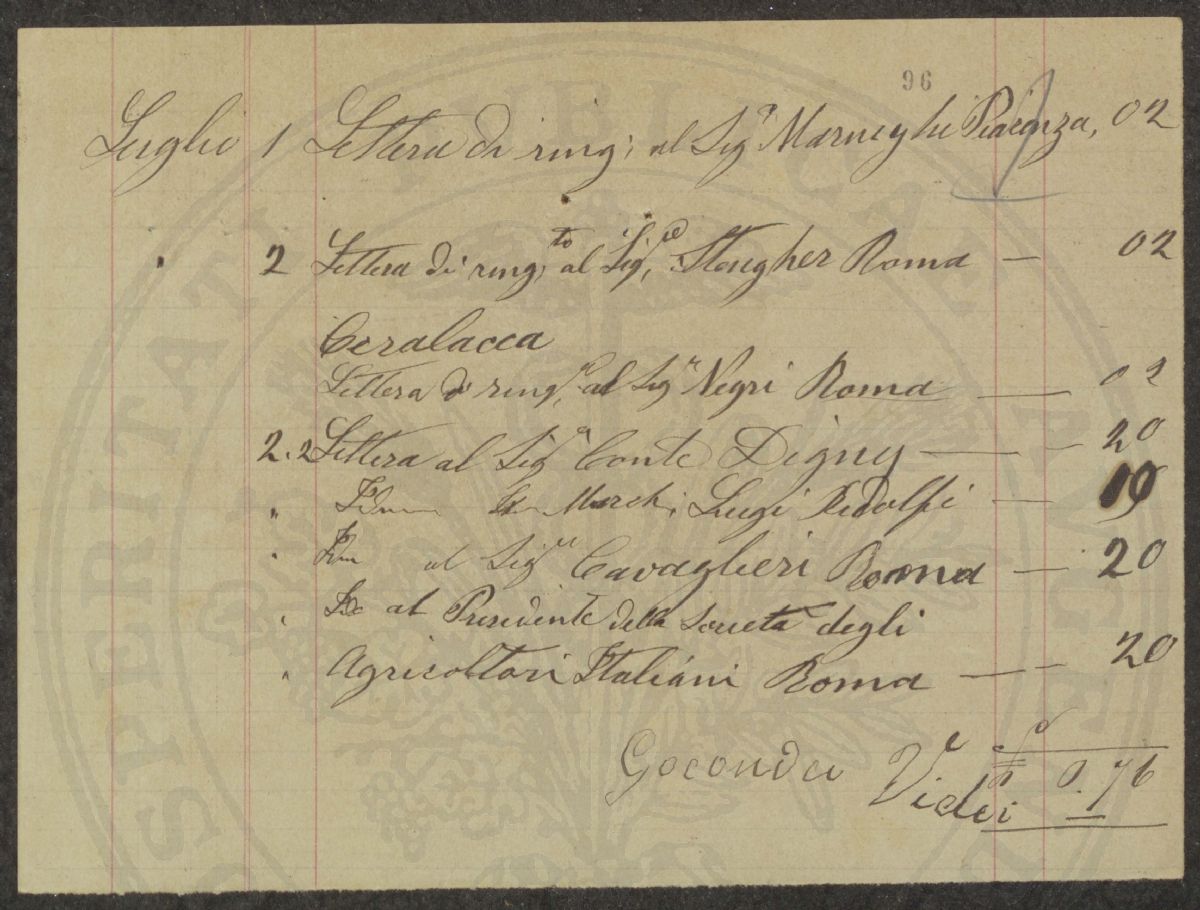 96
Luglio 1 Lettera di ring; al Sigr Piacenza, 02
2 Lettera di ring;to al Sig, Roma — 02
Ceralacca
Lettera di ring, al Sigr Negri Roma — 02
2.2 Lettera al Sigr Conte Digny — 20
" March; Luigi Ridolfi —
" al Sigr Cavaglieri Roma — 20
" al Presidente della Società degli
" Agricoltori Italiani Roma — 20
Gioconda Vidi 0.76